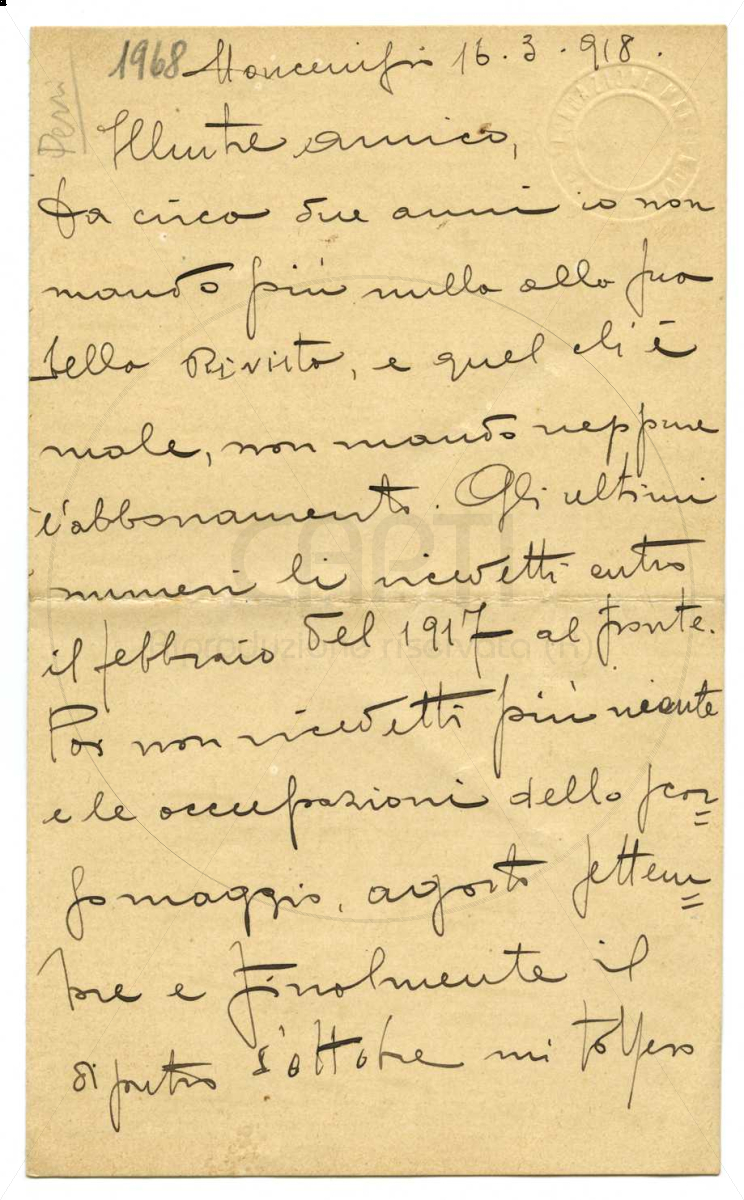 1968 Moncenisio 16.3.918.
Perri
Illustre amico,
Da circa due anni io non
mando più nulla alla sua
bella Rivista, e quel ch'è
male, non mando neppure
l'abbonamento. Gli ultimi
numeri li ricevetti entro
il febbraio del 1917 al fronte.
Poi non ricevetti più niente
e le occupazioni dello scor=
so maggio, agosto settem=
bre e finalmente il
di dietro d'ottobre mi tolsero
CAPTI
riproduzione riservata (n)